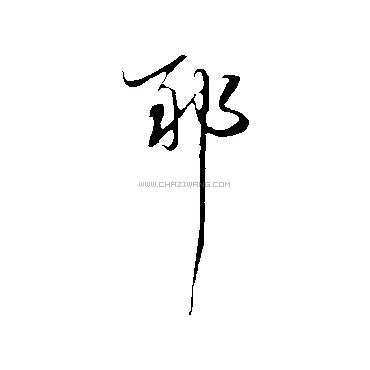 耶
WWW.CHAZIWANG.COM